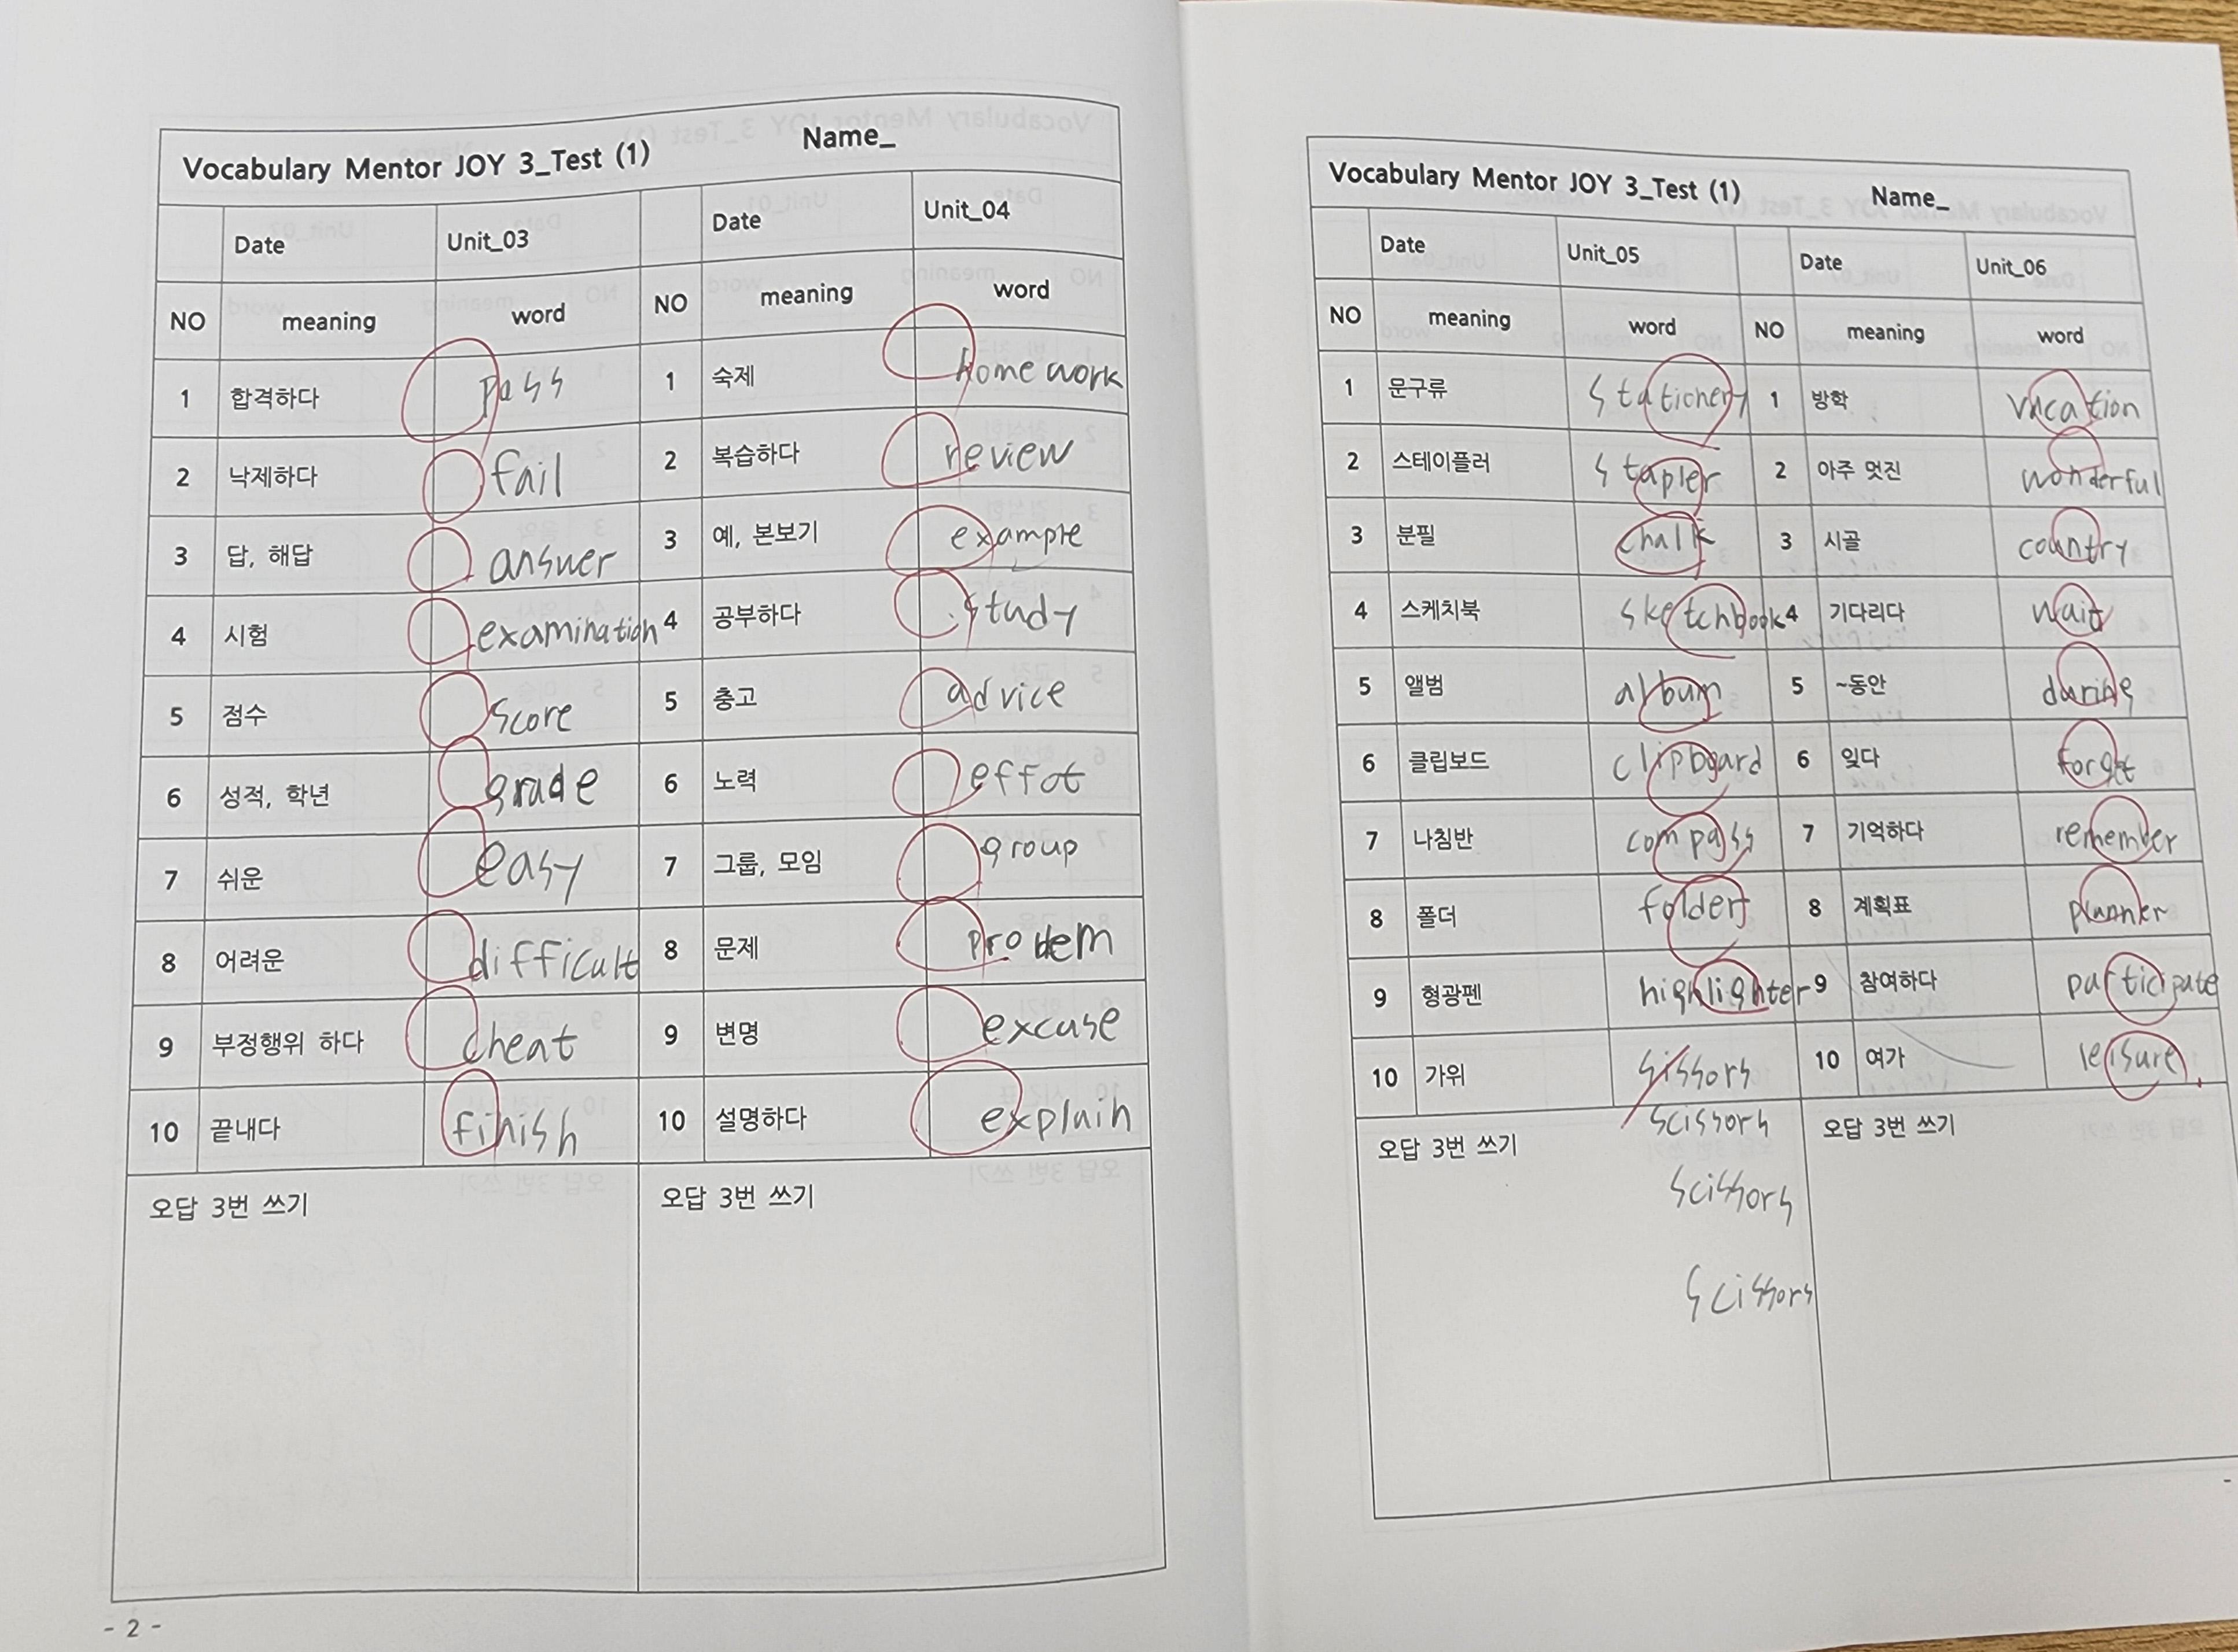 Vocabulary Mentor JOY 3_Test (1) Name_
Date Unit_03 Date Unit_04
NO meaning word NO meaning word
1 합격하다 pass 1 숙제 homework
2 낙제하다 fail 2 복습하다 review
3 답, 해답 answer 3 예, 본보기 example
4 시험 examination 4 공부하다 study
5 점수 score 5 충고 advice
6 성적, 학년 grade 6 노력 effot
7 쉬운 easy 7 그룹, 모임 group
8 어려운 difficult 8 문제 problem
9 부정행위 하다 cheat 9 변명 excuse
10 끝내다 finish 10 설명하다 explain
오답 3번 쓰기 오답 3번 쓰기
- 2 -
Vocabulary Mentor JOY 3_Test (1) Name_
Date Unit_05 Date Unit_06
NO meaning word NO meaning word
1 문구류 stationery 1 방학 vacation
2 스테이플러 stapler 2 아주 멋진 wonderful
3 분필 chalk 3 시골 country
4 스케치북 sketchbook 4 기다리다 wait
5 앨범 album 5 ~동안 during
6 클립보드 clipboard 6 잊다 forget
7 나침반 compass 7 기억하다 remember
8 폴더 folder 8 계획표 planner
9 형광펜 highlighter 9 참여하다 participate
10 가위 sissors 10 여가 leisure
오답 3번 쓰기 scissors 오답 3번 쓰기
scissors
scissors